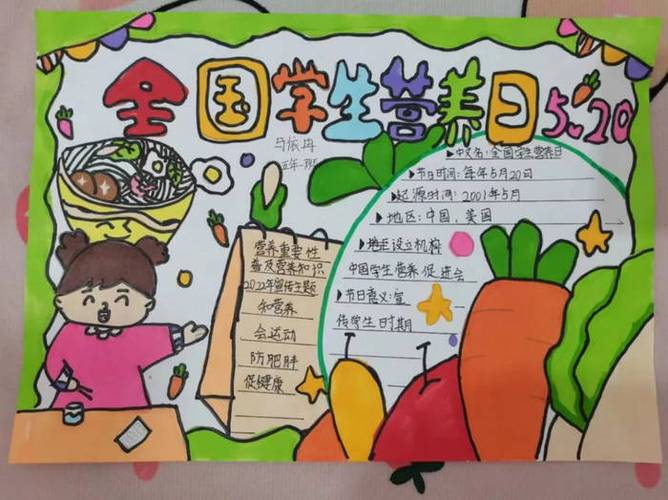 全国学生营养日5.20
马依冉
五年一班
中文名:全国学生营养日
节日时间:每年5月20日
起源时间:2001年5月
地区:中国、美国
设立机构
中国学生营养促进会
节日意义:宣
传学生时期
营养重要性
普及营养知识
2022年宣传主题
知营养
会运动
防肥胖
促健康